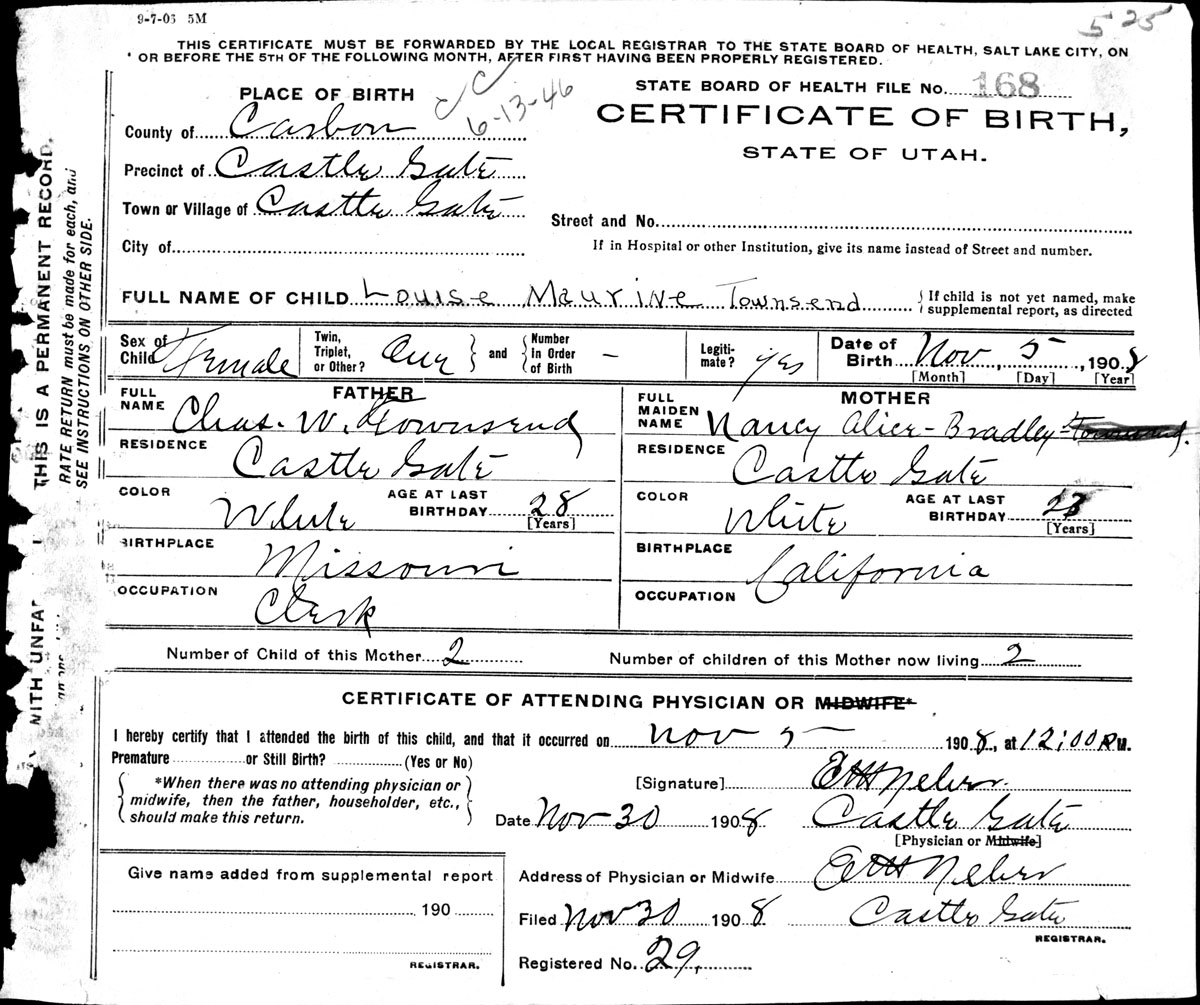 9-7-08 5M
5 25
THIS CERTIFICATE MUST BE FORWARDED BY THE LOCAL REGISTRAR TO THE STATE BOARD OF HEALTH, SALT LAKE CITY, ON
OR BEFORE THE 5TH OF THE FOLLOWING MONTH, AFTER FIRST HAVING BEEN PROPERLY REGISTERED.
STATE BOARD OF HEALTH FILE No. 168
PLACE OF BIRTH
6-13-46
CERTIFICATE OF BIRTH,
STATE OF UTAH.
County of Carbon
Precinct of Castle Gate
Town or Village of Castle Gate
Street and No.
City of
If in Hospital or other Institution, give its name instead of Street and number.
FULL NAME OF CHILD Louise Maurine Townsend { If child is not yet named, make supplemental report, as directed
Sex of Child Female Twin, Triplet, or Other? One } and { Number In Order of Birth - Legiti-mate? yes Date of Birth Nov 5, 1908
[Month] [Day] [Year]
FATHER
MOTHER
FULL NAME Chas. W. Townsend
FULL MAIDEN NAME Nancy Alice-Bradley-Townsend.
RESIDENCE Castle Gate
RESIDENCE Castle Gate
COLOR White AGE AT LAST BIRTHDAY 28 [Years]
COLOR White AGE AT LAST BIRTHDAY 23 [Years]
BIRTHPLACE Missouri
BIRTHPLACE California
OCCUPATION Clerk
OCCUPATION
Number of Child of this Mother 2
Number of children of this Mother now living 2
CERTIFICATE OF ATTENDING PHYSICIAN OR MIDWIFE*
I hereby certify that I attended the birth of this child, and that it occurred on Nov 5 1908, at 12:00 P M.
Premature or Still Birth? (Yes or No)
*When there was no attending physician or
midwife, then the father, householder, etc.,
should make this return.
[Signature]
Date Nov 30 1908 Castle Gate
[Physician or Midwife]
Give name added from supplemental report
190
REGISTRAR.
Address of Physician or Midwife
Filed Nov 30 1908 Castle Gate
REGISTRAR.
Registered No. 29.
THIS IS A PERMANENT RECORD.
RATE RETURN must be made for each, and
SEE INSTRUCTIONS ON OTHER SIDE.
WITH UNFA